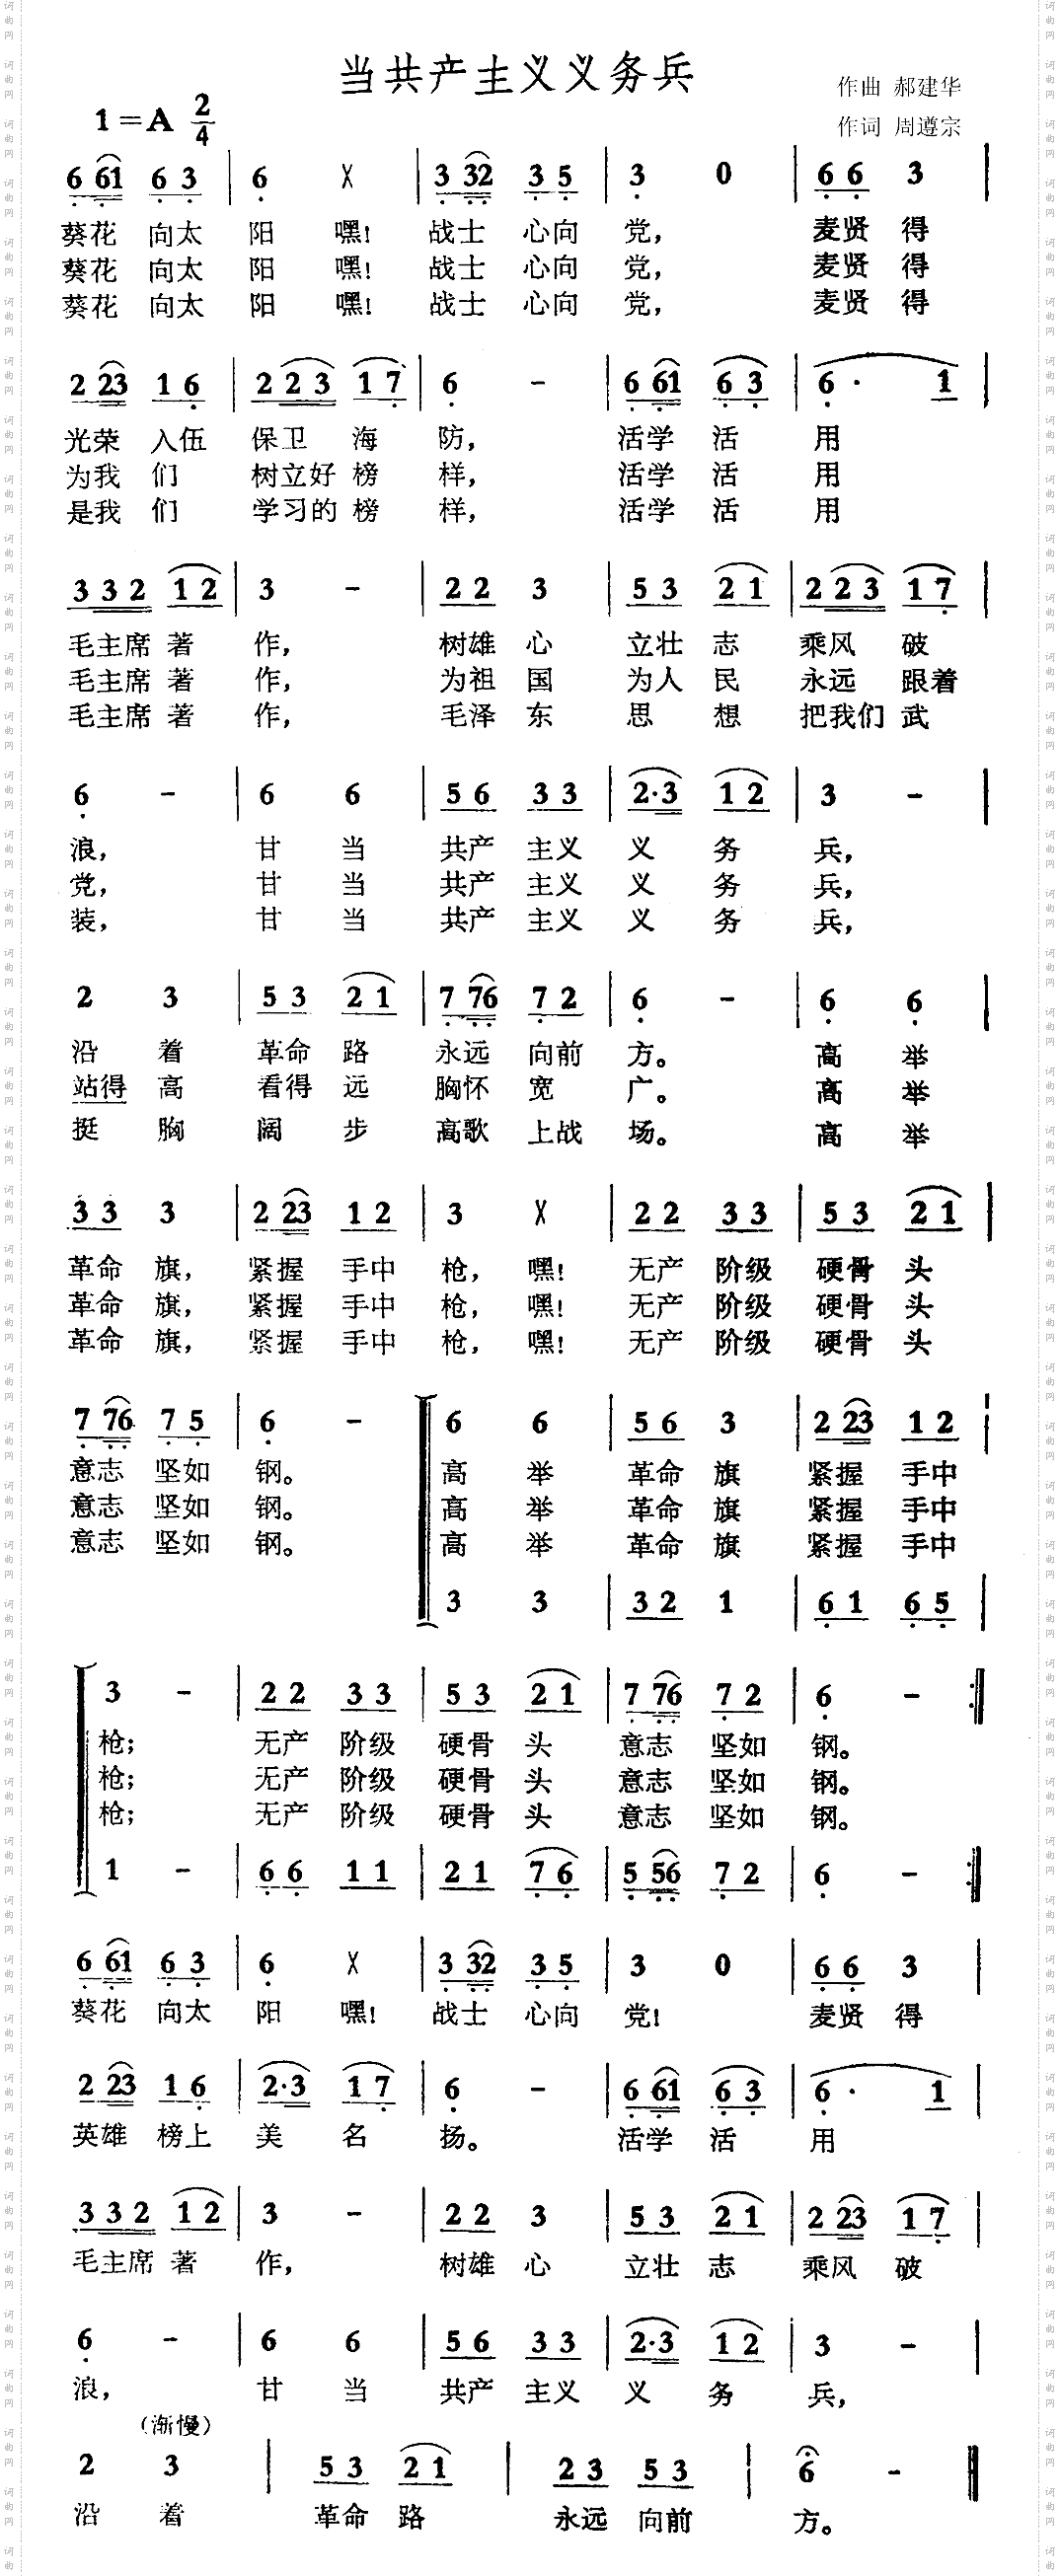 当共产主义义务兵
作曲 郝建华
1=A 2/4
作词 周遵宗
6 61 6 3 | 6 X | 3 32 3 5 | 3 0 | 6 6 3 |
葵花 向太 阳 嘿! 战士 心向 党, 麦贤 得
葵花 向太 阳 嘿! 战士 心向 党, 麦贤 得
葵花 向太 阳 嘿! 战士 心向 党, 麦贤 得
2 23 1 6 | 2 2 3 1 7 | 6 - | 6 61 6 3 | 6 · 1 |
光荣 入伍 保卫 海 防, 活学 活 用
为我 们 树立好 榜 样, 活学 活 用
是我 们 学习的 榜 样, 活学 活 用
3 3 2 1 2 | 3 - | 2 2 3 | 5 3 2 1 | 2 2 3 1 7 |
毛主席 著 作, 树雄 心 立壮 志 乘风 破
毛主席 著 作, 为祖 国 为人 民 永远 跟着
毛主席 著 作, 毛泽 东 思 想 把我们 武
6 - | 6 6 | 5 6 3 3 | 2·3 1 2 | 3 - |
浪, 甘 当 共产 主义 义 务 兵,
党, 甘 当 共产 主义 义 务 兵,
装, 甘 当 共产 主义 义 务 兵,
2 3 | 5 3 2 1 | 7 76 7 2 | 6 - | 6 6 |
沿 着 革命 路 永远 向前 方。 高 举
站得 高 看得 远 胸怀 宽 广。 高 举
挺 胸 阔 步 高歌 上战 场。 高 举
3 3 3 | 2 23 1 2 | 3 X | 2 2 3 3 | 5 3 2 1 |
革命 旗, 紧握 手中 枪, 嘿! 无产 阶级 硬骨 头
革命 旗, 紧握 手中 枪, 嘿! 无产 阶级 硬骨 头
革命 旗, 紧握 手中 枪, 嘿! 无产 阶级 硬骨 头
7 76 7 5 | 6 - | 6 6 | 5 6 3 | 2 23 1 2 |
意志 坚如 钢。 高 举 革命 旗 紧握 手中
意志 坚如 钢。 高 举 革命 旗 紧握 手中
意志 坚如 钢。 高 举 革命 旗 紧握 手中
3 3 | 3 2 1 | 6 1 6 5 |
3 - | 2 2 3 3 | 5 3 2 1 | 7 76 7 2 | 6 - :|
枪; 无产 阶级 硬骨 头 意志 坚如 钢。
枪; 无产 阶级 硬骨 头 意志 坚如 钢。
枪; 无产 阶级 硬骨 头 意志 坚如 钢。
1 - | 6 6 1 1 | 2 1 7 6 | 5 56 7 2 | 6 - :|
6 61 6 3 | 6 X | 3 32 3 5 | 3 0 | 6 6 3 |
葵花 向太 阳 嘿! 战士 心向 党! 麦贤 得
2 23 1 6 | 2·3 1 7 | 6 - | 6 61 6 3 | 6 · 1 |
英雄 榜上 美 名 扬。 活学 活 用
3 3 2 1 2 | 3 - | 2 2 3 | 5 3 2 1 | 2 23 1 7 |
毛主席 著 作, 树雄 心 立壮 志 乘风 破
6 - | 6 6 | 5 6 3 3 | 2·3 1 2 | 3 - |
浪, 甘 当 共产 主义 义 务 兵,
(渐慢)
2 3 | 5 3 2 1 | 2 3 5 3 | 6 - ‖
沿 着 革命 路 永远 向前 方。